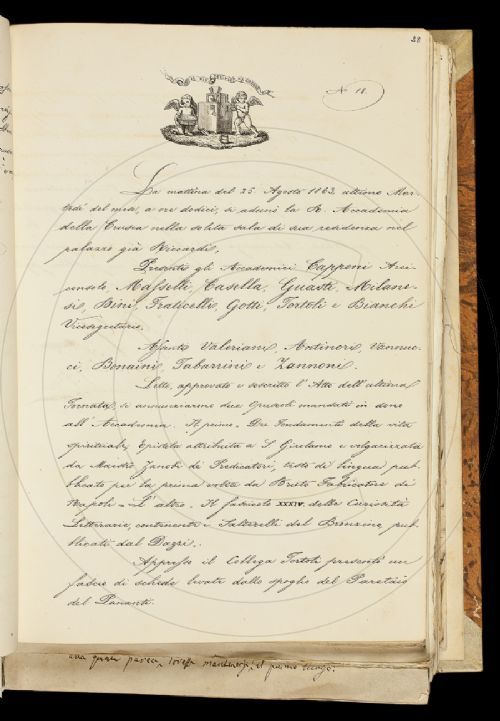 28
N° 18.
La mattina del 25 Agosto 1863, ultimo Mar-
tedì del mese, a ore dodici, si adunò la R. Accademia
della Crusca nella solita sala di sua residenza nel
palazzo già Riccardi.
Presenti gli Accademici Capponi Arci-
consolo, Casella, Guasti, Milane-
si, Bini, Fraticelli, Gotti, Tortoli e Bianchi
Vicesegretario.
Assenti Valeriani, Antinori, Vannuc-
ci, Bonaini, Tabarrini e Zannoni.
Letto, approvato e soscritto l'Atto dell'ultima
Tornata, si annunziarono due Opuscoli mandati in dono
all'Accademia. Il primo - Dei fondamenti della vita
spirituale, Epistola attribuita a S. Girolamo e volgarizzata
da Maestro Zanobi de' Predicatori, testo di lingua pub-
blicato per la prima volta da Fabricatore di
Napoli - l'altro - Il fascicolo XXXIV. delle Curiosità
Letterarie, contenente i Salterelli del Bronzino, pub-
blicati dal
Appresso il Collega Tortoli presentò un
fascio di schede levate dallo spoglio del Paretaio
del Pananti.